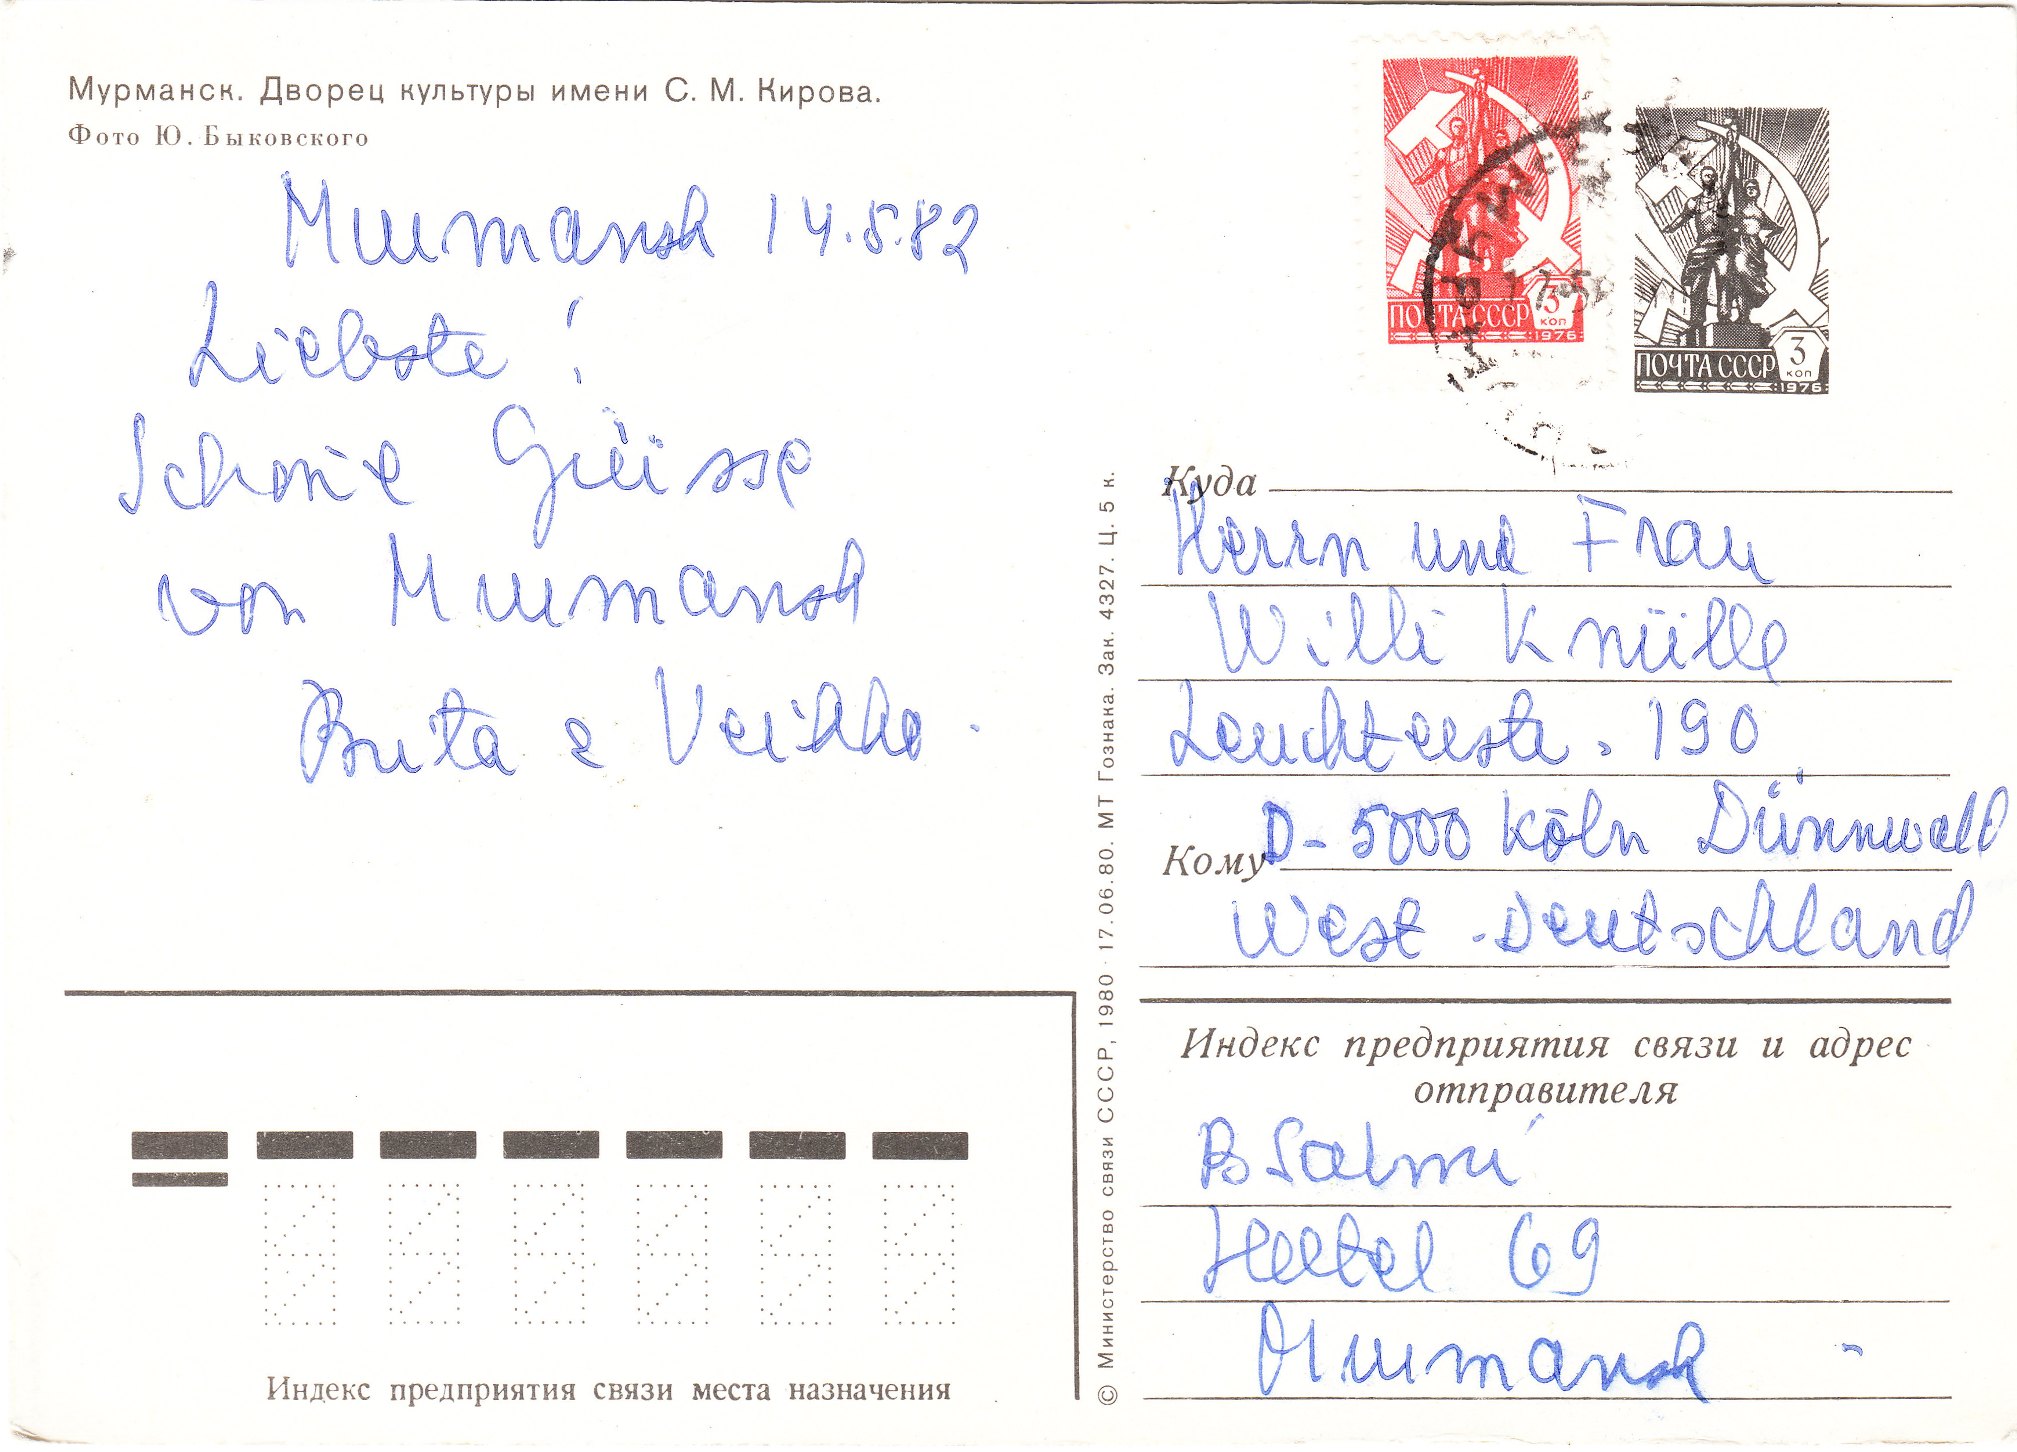 Мурманск. Дворец культуры имени С. М. Кирова.
Фото Ю. Быковского
Murmansk 14.5.82
Liebste!
Schöne Grüsse
von Murmansk
Brita & Veikko.
ПОЧТА СССР
3
КОП
1976
ПОЧТА СССР
3
КОП
1976
МУРМАНСК
Куда
Herrn und Frau
Willi Knülle
Leuchterstr. 190
Кому
D-5000 Köln Dünnwald
West-Deutschland
Индекс предприятия связи и адрес
отправителя
B Salmi
Hotel 69
Murmansk
© Министерство связи СССР, 1980 · 17.06.80. МТ Гознака. Зак. 4327. Ц. 5 к.
Индекс предприятия связи места назначения